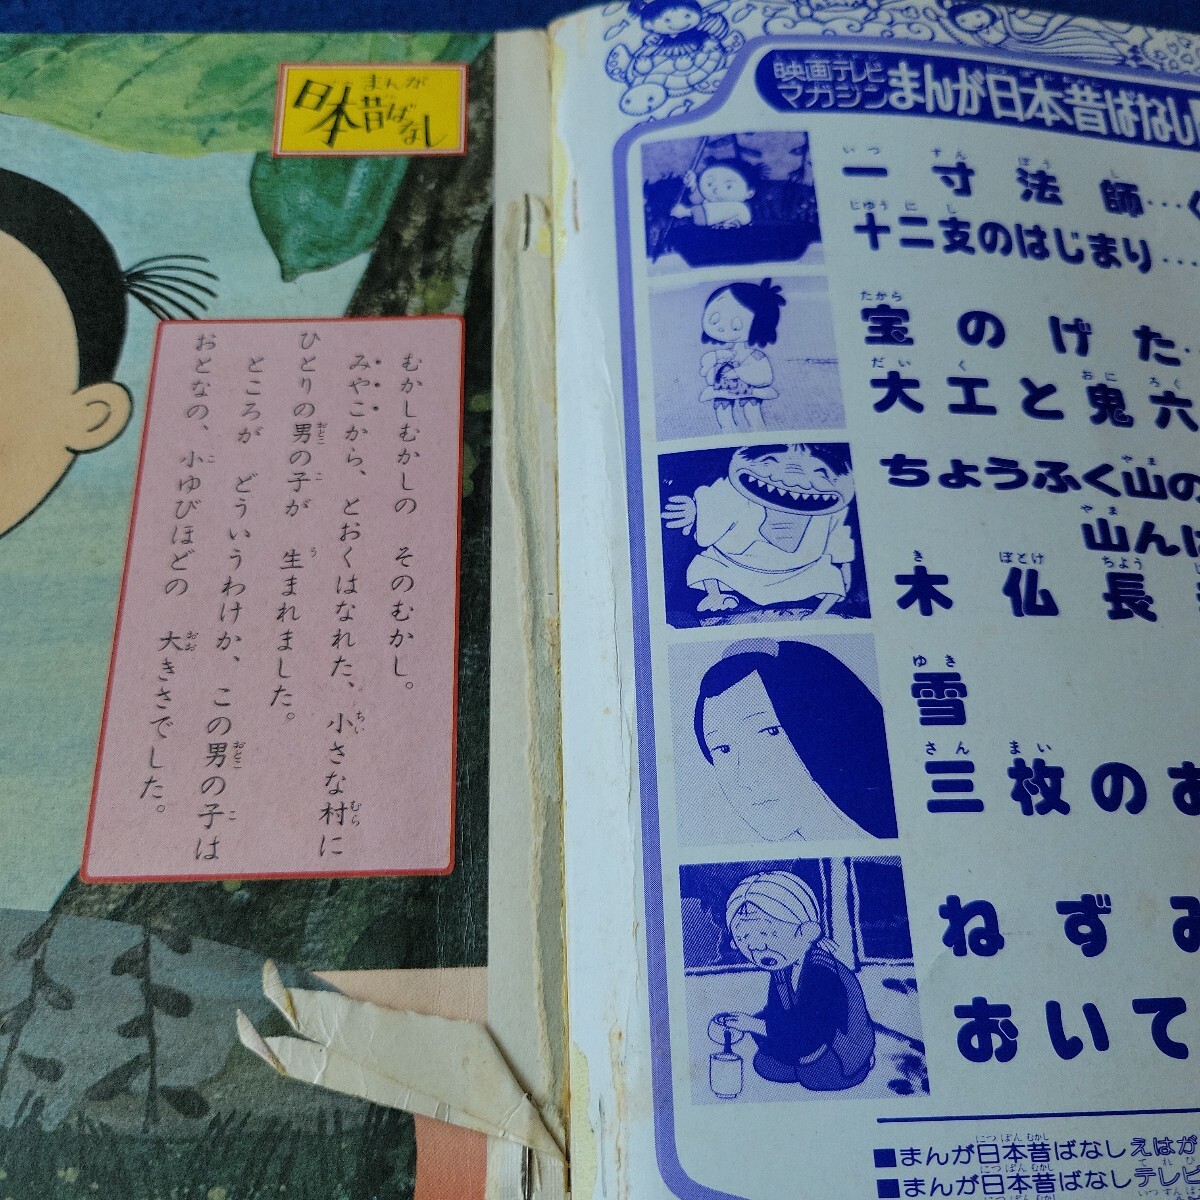 まんが
日本昔ばなし
むかしむかしの そのむかし。
みやこから、とおくはなれた、小さな村に
ひとりの男の子が 生まれました。
ところが どういうわけか、この男の子は
おとなの、小ゆびほどの 大きさでした。
映画テレビ
マガジン
まんが日本昔ばなし
一寸法師…
十二支のはじまり…
宝のげた
大工と鬼六
ちょうふく山の
山ん
木仏長
雪
三枚のお
ねずみ
おいて
■まんが日本昔ばなしえはが
■まんが日本昔ばなしテレビ